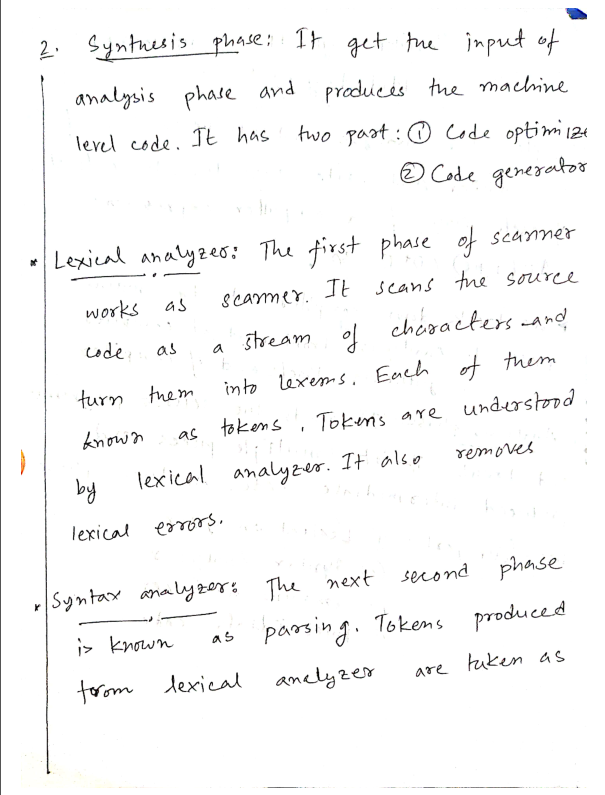 2. Synthesis phase: It get the input of
analysis phase and produces the machine
level code. It has two part: ① Code optimize
② Code generator
* Lexical analyzer: The first phase of scanner
works as scanner. It scans the source
code as a stream of characters and
turn them into lexems. Each of them
known as tokens. Tokens are understood
by lexical analyzer. It also removes
lexical errors.
* Syntax analyzer: The next second phase
is known as parsing. Tokens produced
from lexical analyzer are taken as